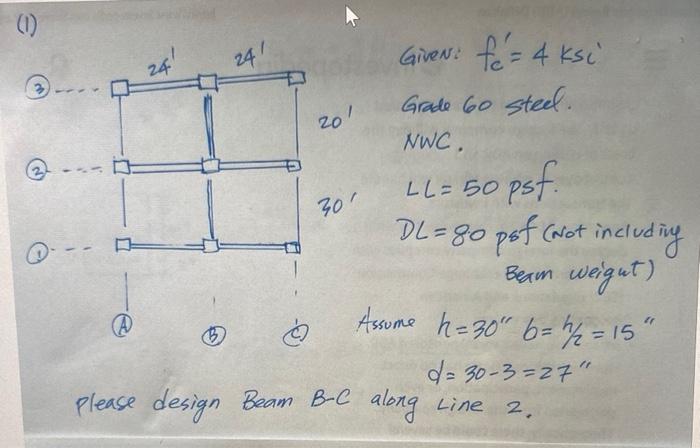 (1)
24' 24'
Given: fc' = 4 ksi
3
Grade 60 steel.
20'
NWC.
2
LL = 50 psf.
30'
DL = 80 psf (Not including
Beam weigut)
1
A B C
Assume h = 30" b = h/2 = 15"
d = 30 - 3 = 27"
please design Beam B-C along Line 2.